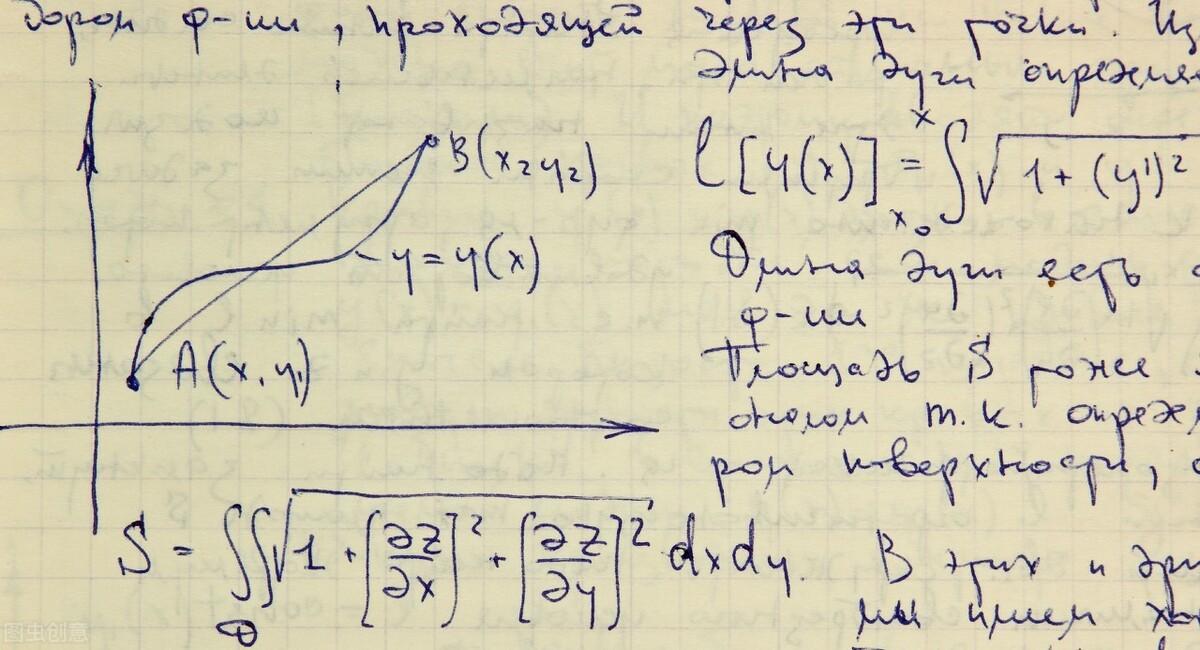 ф-ии, проходящей через эти точки. Из
Длина дуги определя
B(x₂y₂)
l[y(x)] = ∫ₓ₀ˣ √1+(y')²
y=y(x)
Длина дуги есть
ф-ии
A(x, y₁)
Площадь S тоже
оналом т.к. определ
рой поверхности,
S = ∬_D √1+[∂z/∂x]²+[∂z/∂y]² dxdy. В этих и дру
мы имеем
图虫创意